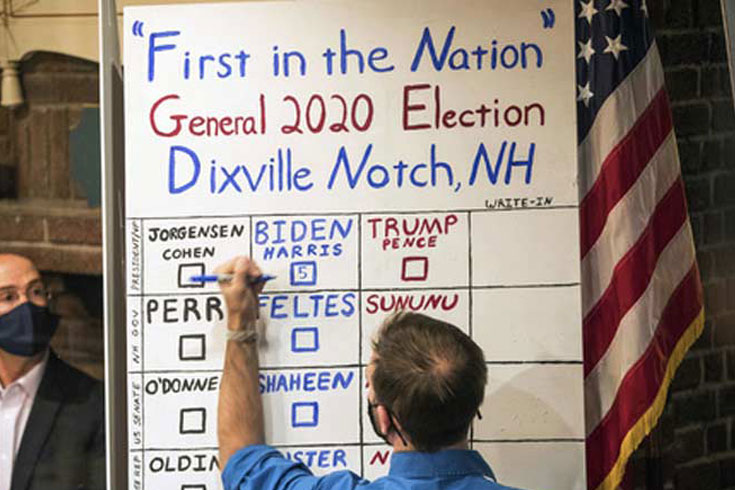 "First in the Nation"
General 2020 Election
Dixville Notch, NH
WRITE-IN
PRESIDENT/VP
JORGENSEN
COHEN
BIDEN
HARRIS
5
TRUMP
PENCE
NH GOV
PERR
FELTES
SUNUNU
US SENATE
O'DONNE
SHAHEEN
REP
OLDIN
STER
N